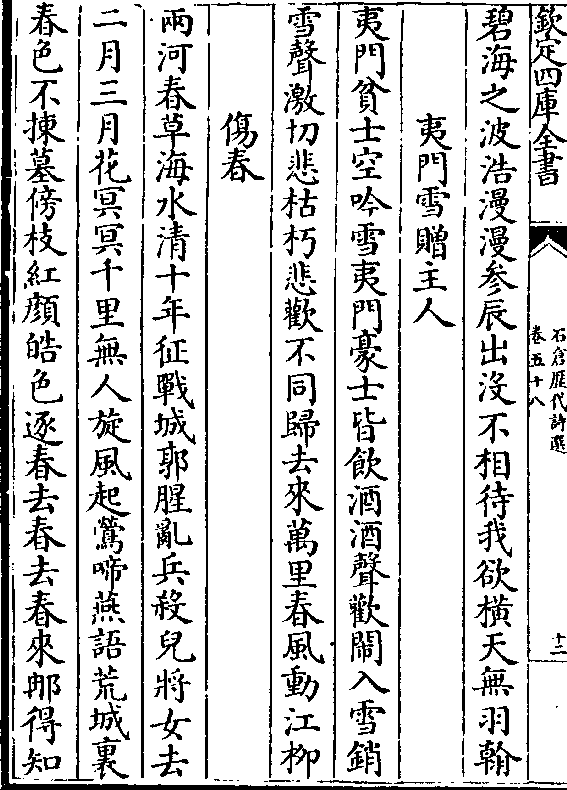 欽定四庫全書
石倉歷代詩選
卷五十八
十二
碧海之波浩漫漫參辰出沒不相待我欲橫天無羽翰
夷門雪贈主人
夷門貧士空吟雪夷門豪士皆飲酒酒聲歡鬧入雪銷
雪聲激切悲枯朽悲歡不同歸去來萬里春風動江柳
傷春
兩河春草海水清十年征戰城郭腥亂兵殺兒將女去
二月三月花冥冥千里無人旋風起鶯啼燕語荒城裏
春色不揀墓傍枝紅顏皓色逐春去春去春來那得知